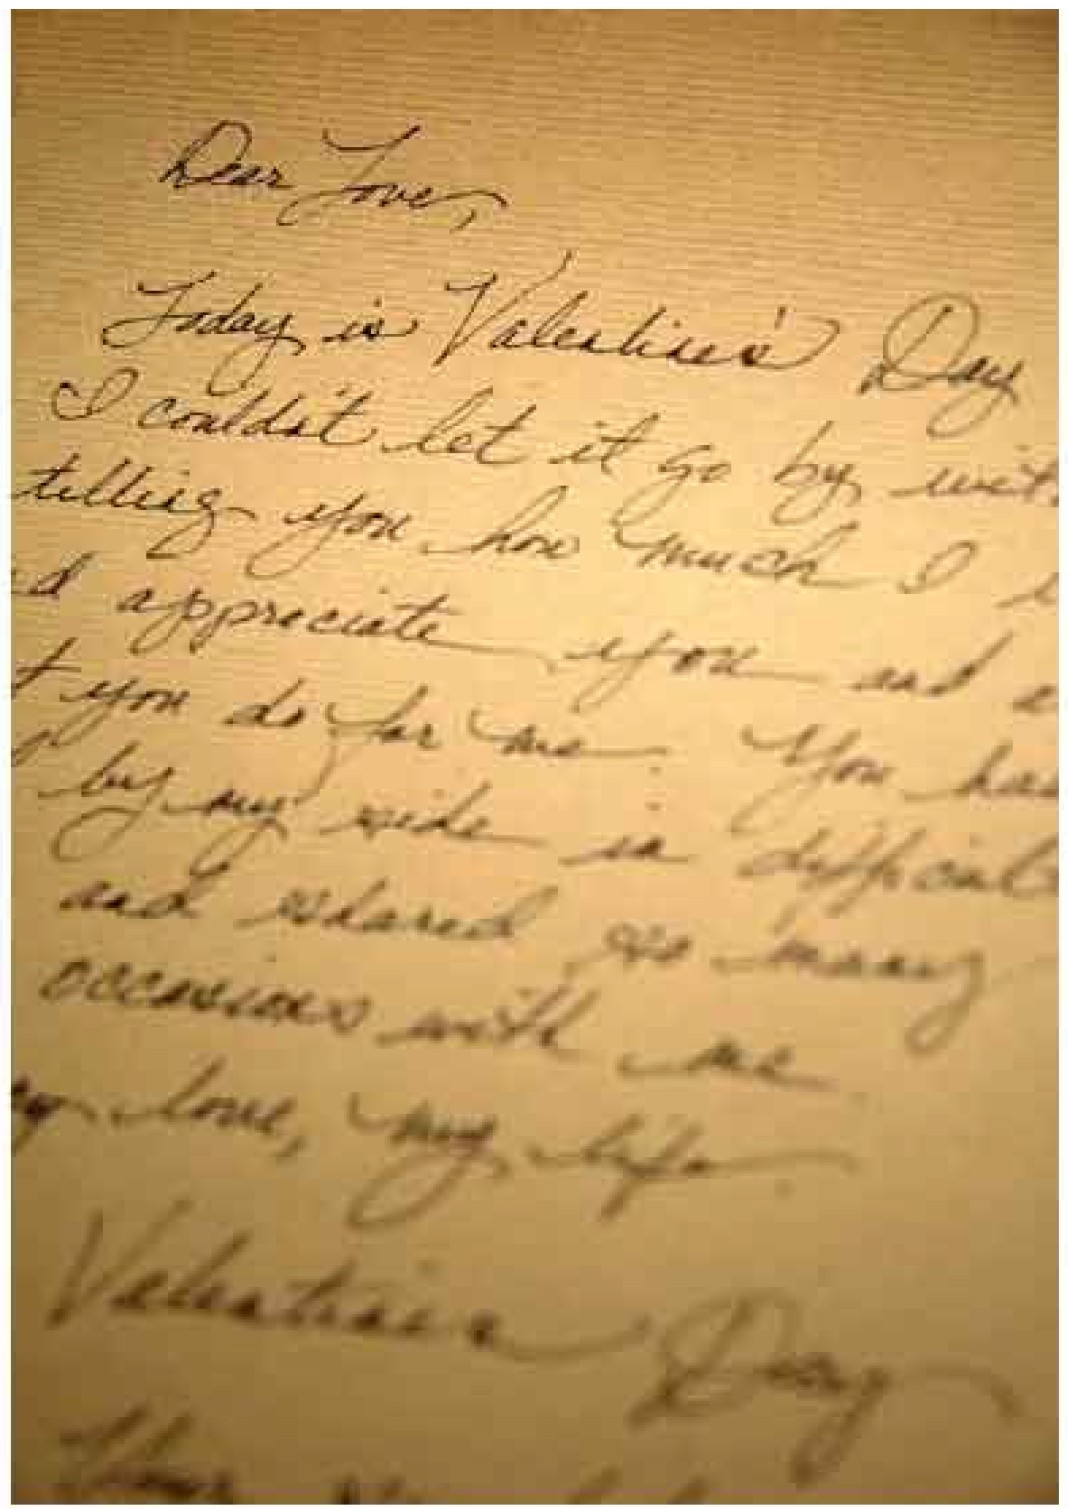 Dear Love,
Today is Valentine's Day
I couldn't let it go by, wit
telling you how much I
d appreciate you and a
t you do for me. You ha
by my side in difficult
and shared so many
occasions with me
ey love, my life
Valentine's Day
Your